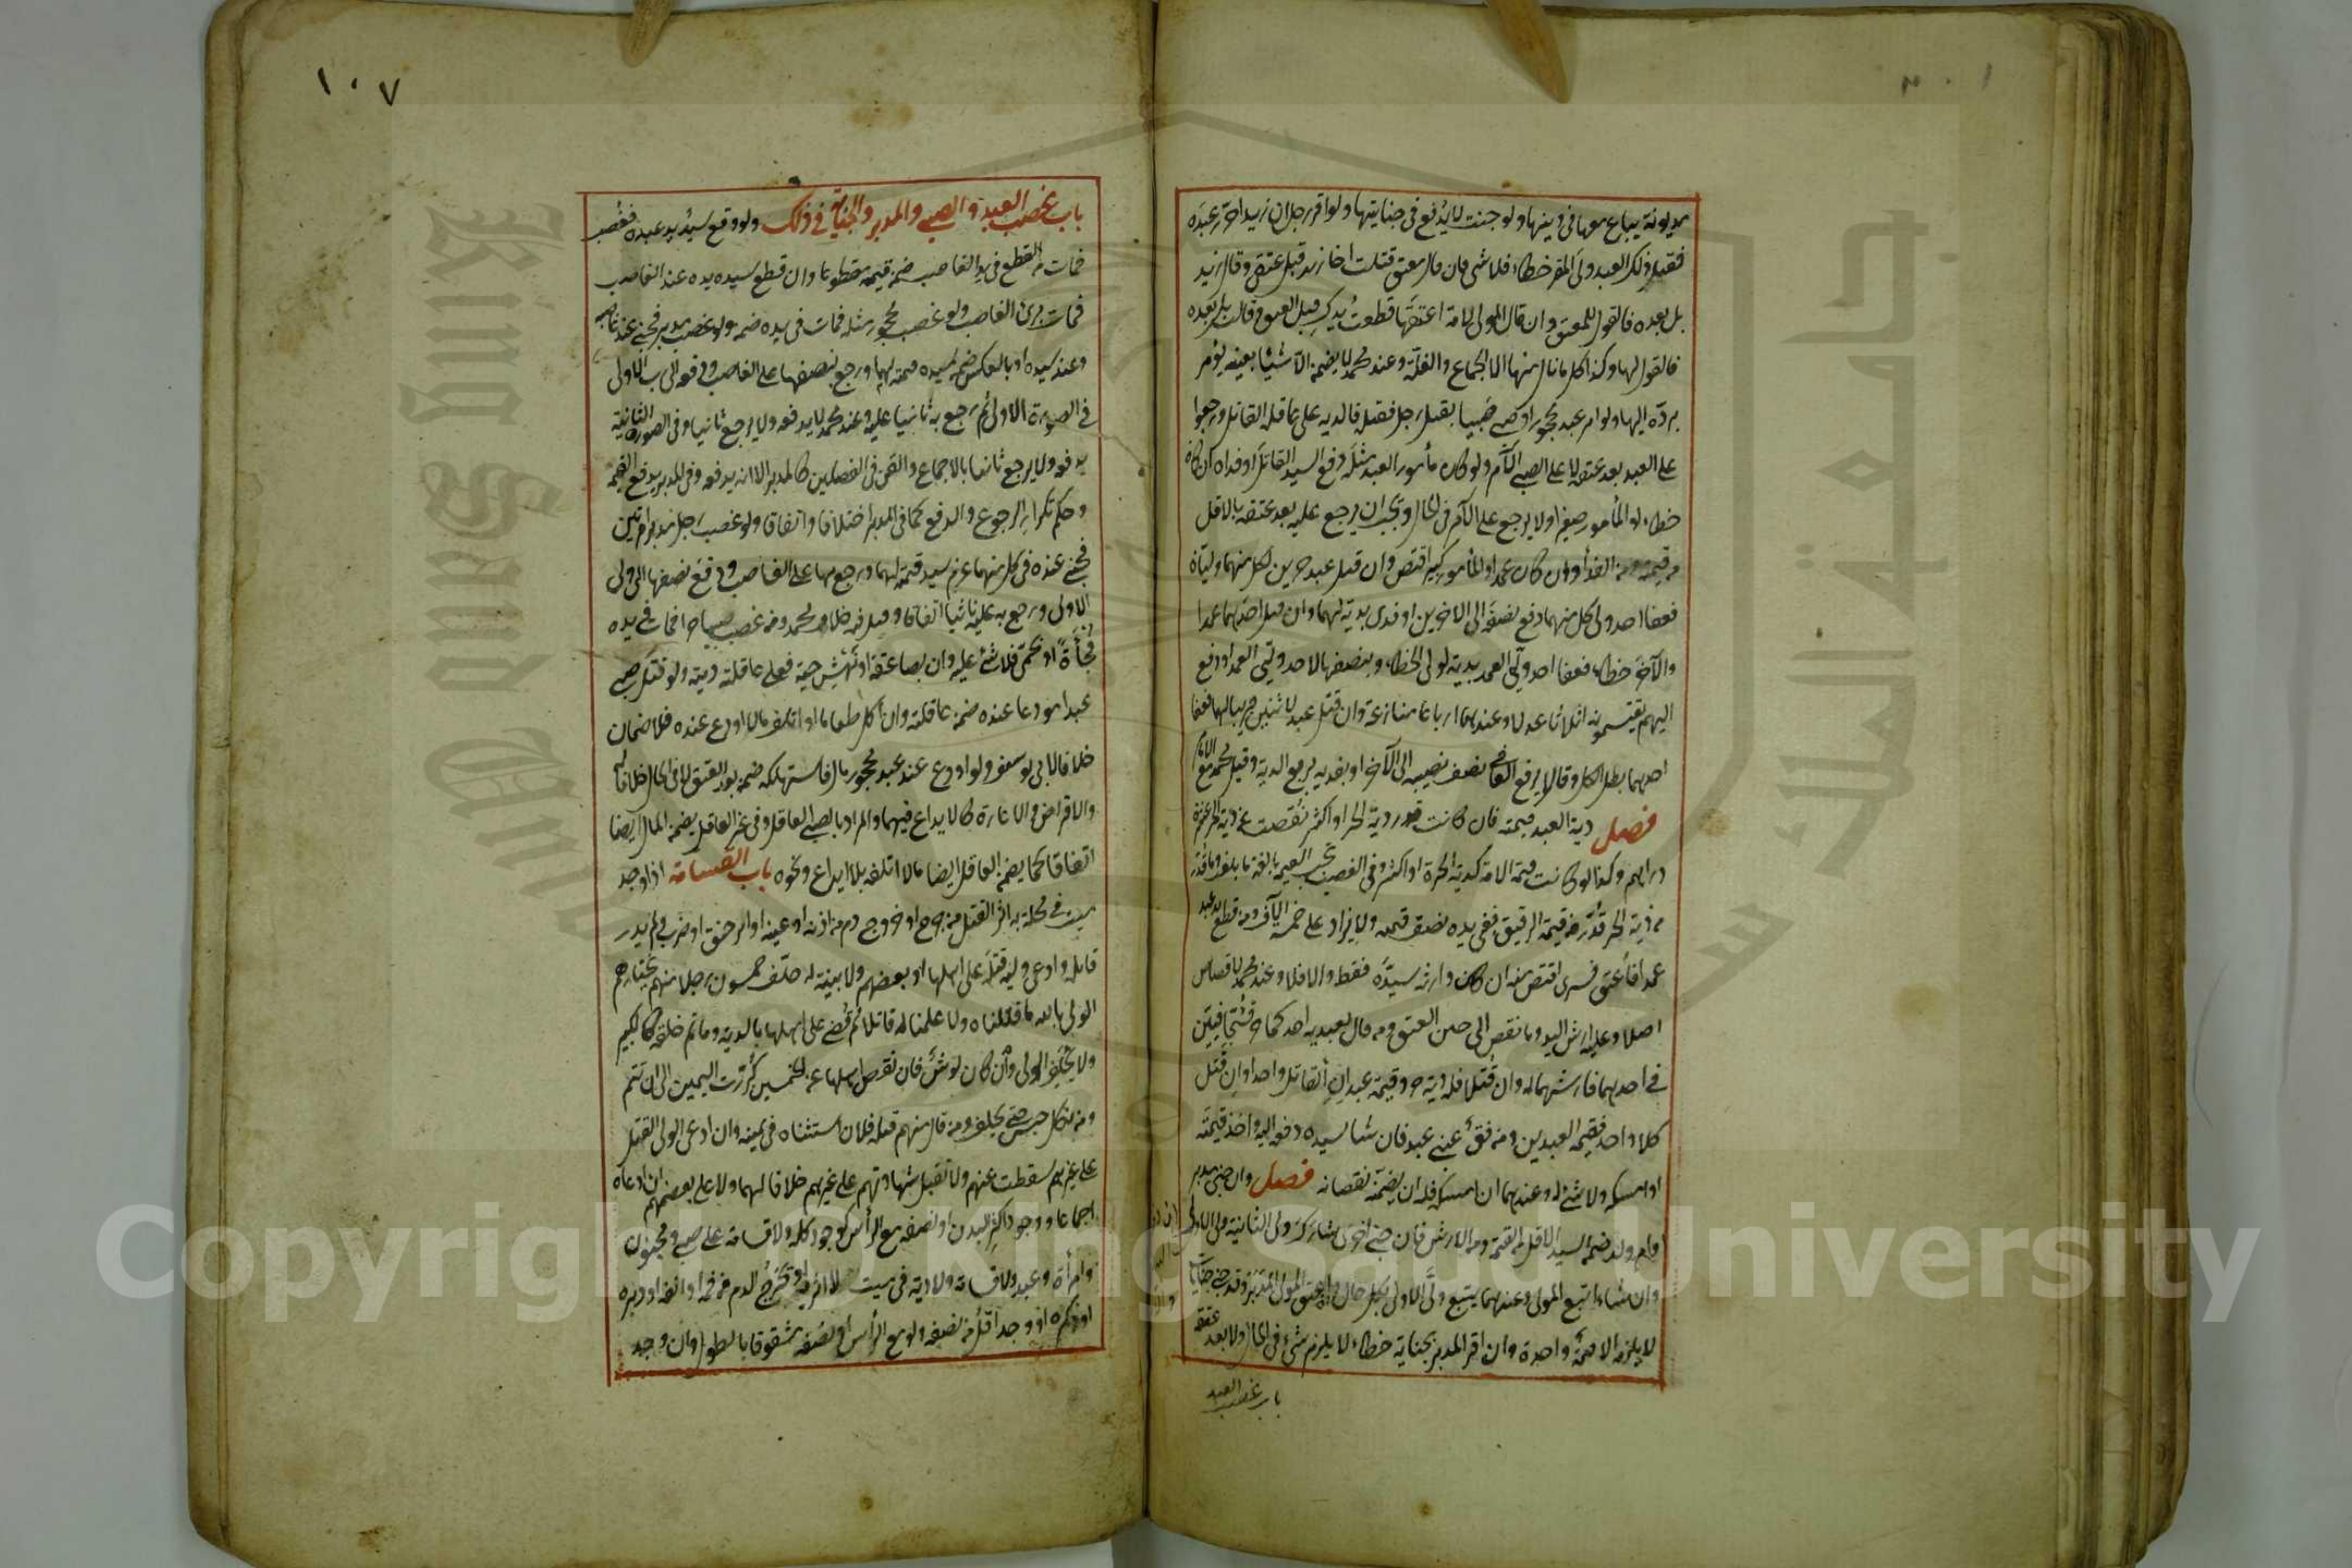 مديونة يباع معها في دينها ولو جنت لا يدفع في جنايتها ولو اقر رجل ان زيدا حرر عبده
فقتل ذلك العبد ولي المقر خطاء فلا شئ فان قال معتق قتلت اخا زيد قبل عتقي وقال زيد
بل بعده فالقول للمعتق وان قال المولى لامة اعتقها قطعت يدك قبل العتق وقالت بل بعده
فالقول لها وكذا كل ما نال منها الا الجماع والغلة وعند محمد لا يضمن الا شيئا بعينه يؤمر
برده اليها ولو امر عبد محجور او صبي صبيا بقتل رجل فقتله فالدية على عاقلة القاتل ورجعوا
على العبد بعد عتقه لا على الصبي الآمر ولو كان مأمور العبد مثله دفع السيد القاتل او فداه ان كان
خطاء او المأمور صغيرا ولا يرجع على الآمر في الحال ويجب ان يرجع عليه بعد عتقه بالاقل
من قيمته ومن الفداء وان كان عمدا والمأمور كبيرا اقتص وان قتل عبد حرين لكل منهما وليان
فعفا احد وليي كل منهما دفع نصفه الى الآخرين او فدى بدية لهما وان قتل احدهما عمدا
والآخر خطاء فعفا احد وليي العمد فدى بدية لولي الخطاء وبنصفها لاحد وليي العمد او دفع
اليهم يقتسمونه اثلاثا عولا وعندهما ارباعا منازعة وان قتل عبد لاثنين قريبا لهما فعفا
احدهما بطل الكل وقالا يدفع العافي نصف نصيبه الى الآخر او يفديه بربع الدية وقيل محمد مع الامام
فصل دية العبد قيمته فان كانت قدر دية الحر او اكثر نقصت عن دية الحر عشرة
دراهم وكذا لو كانت قيمة الامة كدية الحرة او اكثر وفي الغصب تجب القيمة بالغة ما بلغت وما قدر
من دية الحر قدر من قيمة الرقيق ففي يده نصف قيمته ولا يزاد على خمسة آلاف ومن قطع يد عبد
عمدا فاعتق فسرى اقتص منه ان كان وارثه سيده فقط والا فلا وعند محمد لا قصاص
اصلا وعليه ارش اليد وما نقص الى حين العتق ومن قال لعبديه احدكما حر فشجا فبين
في احدهما فارشهما له وان قتلا فله دية حر وقيمة عبد ان القاتل واحدا وان قتل
كلا واحد فقيمة العبدين ومن فقأ عيني عبد فان شا سيده دفعه اليه واخذ قيمته
او امسكه ولا شئ له وعندهما ان امسكه فله ان يضمنه نقصانه فصل وان جنى مدبر
او ام ولد ضمن السيد الاقل من القيمة ومن الارش فان جنى اخرى شارك ولي الثانية ولي الاولى
وان شاء اتبع المولى وعندهما يتبع ولي الاولى بكل حال وان اعتق المولى المدبر وقد جنى جنايات
لا يلزمه الا قيمة واحدة وان اقر المدبر بجناية خطاء لا يلزم شئ في الحال ولا بعد عتقه
باب غصب العبد
١٠٧
باب غصب العبد والصبي والمدبر والجناية في ذلك ولو قطع سيد يد عبده فغصب
فمات من القطع في يد الغاصب ضمن قيمته مقطوعا وان قطع سيده يده عند الغاصب
فمات برئ الغاصب ولو غصب محجور مثله فمات في يده ضمن ولو غصب مدبر فجنى عند غاصبه
وعند سيده او بالعكس ضمن سيده قيمته لهما ورجع بنصفها على الغاصب ودفعه الى رب الاولى
في الصورة الاولى ثم رجع به ثانيا عليه وعند محمد لا يدفعه ولا يرجع ثانيا وفي الصورة الثانية
يدفعه ولا يرجع ثانيا بالاجماع والقن في الفصلين كالمدبر الا انه يدفعه وفي المدبر يدفع القيمة
وحكم تكرار الرجوع والدفع كما في المدبر اختلافا واتفاقا ولو غصب رجل مدبرا مرتين
فجنى عنده في كل منهما غرم سيده قيمته لهما ورجع بها على الغاصب ودفع نصفها الى ولي
الاولى ورجع به عليه ثانيا اتفاقا وقيل فيه خلاف محمد ومن غصب صبيا حرا فمات في يده
فجأة او بحمى فلا شئ عليه وان بصاعقة او نهش حية فعلى عاقلته ديته ولو قتل صبي
عبدا مودعا عنده ضمن عاقلته وان أكل طعاما او اتلف مالا اودع عنده فلا ضمان
خلافا لابي يوسف ولو اودع عند عبد محجور مال فاستهلكه ضمن بعد العتق لا في الحال خلافا له
والاقراض والاعارة كالايداع فيهما والمراد بالصبي العاقل وفي غير العاقل يضمن المال ايضا
اتفاقا كما يضمن العاقل ايضا مالا اتلفه بلا ايداع ونحوه باب القسامة اذا وجد
ميت في محلة به اثر القتل من جرح او خروج دم من اذنه او عينه او اثر خنق او ضرب ولم يدر
قاتله وادعى وليه قتله على اهلها او بعضهم ولا بينة له حلف خمسون رجلا منهم يختارهم
الولي بالله ما قتلناه ولا علمنا له قاتلا ثم قضي على اهلها بالدية وما تم خلقه كالكبير
ولا يحلف الولي وان كان لوث فان نقص اهلها عن الخمسين كررت اليمين الى ان تتم
ومن نكل حبس حتى يحلف ومن قال منهم قتله فلان استثناه في يمينه وان ادعى الولي القتل
على غيرهم سقطت عنهم ولا تقبل شهادتهم على غيرهم خلافا لهما ولا على بعضهم ان ادعاه
اجماعا ووجود اكثر البدن او نصفه مع الرأس كوجود كله ولا قسامة على صبي ومجنون
وامرأة وعبد ولا قسامة ولا دية في ميت لا اثر به او تخرج الدم من فمه او انفه او دبره
او ذكره او وجد اقل من نصفه ولو مع الرأس او نصفه مشقوقا بالطول وان وجد
Copyright © King Saud University